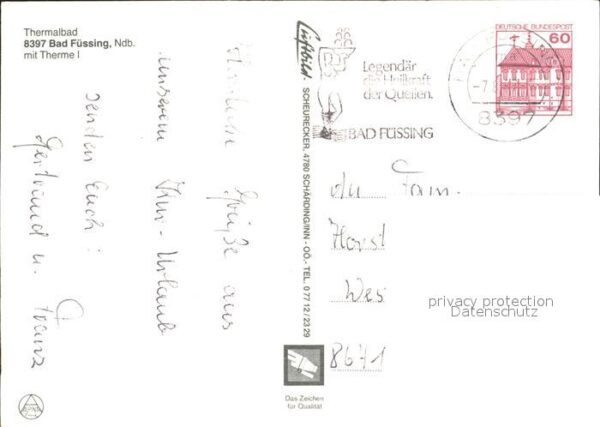 Thermalbad
8397 Bad Füssing, Ndb.
mit Therme I
Herzliche Grüße aus
unserem Kur-Urlaub
senden Euch:
Gertraud u. Franz
Luftbild · SCHEURECKER, 4780 SCHÄRDING/INN - OÖ. - TEL. 0 77 12 / 23 29
Legendär
die Heilkraft
der Quellen.
BAD FÜSSING
DEUTSCHE BUNDESPOST
60
8397
Fam.
Horst
Wes
8671
privacy protection
Datenschutz
Das Zeichen
für Qualität